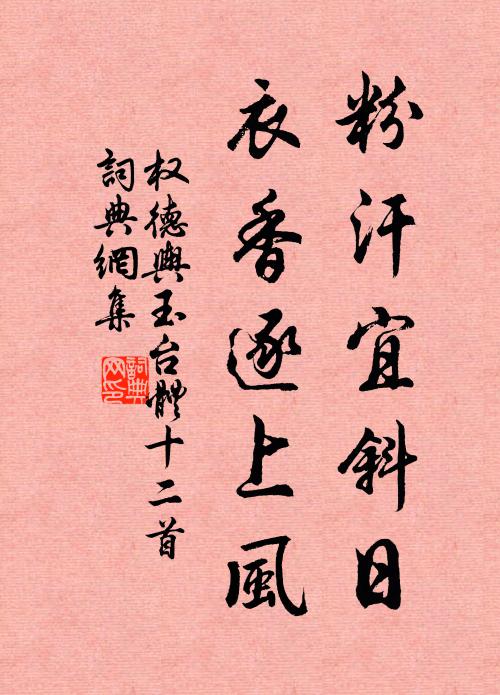 粉汗宜斜日
衣香逐上風
权德輿玉台體十二首
詞典網集
詞典網印